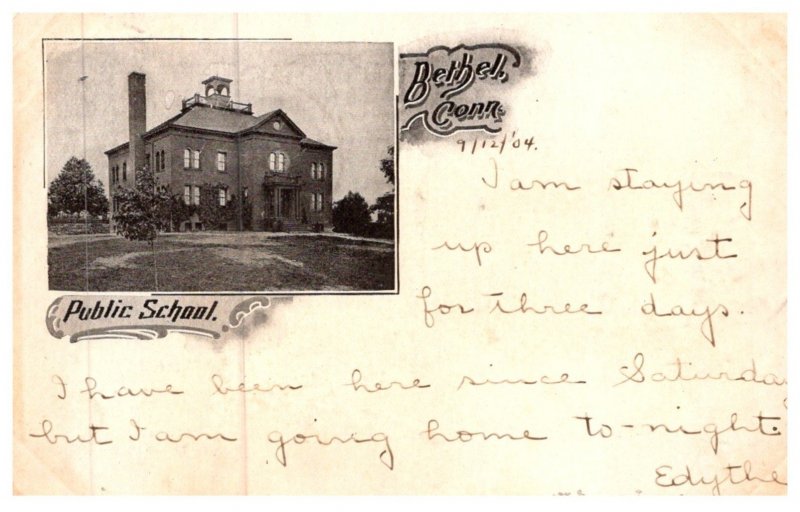 Bethel,
Conn.
9/12/'04.
Public School.
I am staying
up here just
for three days.
I have been here since Saturday
but I am going home to-night.
Edythe